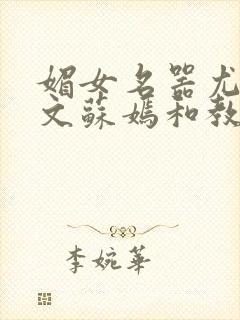 媚女名器尤
文蘇媽和教
李婉華